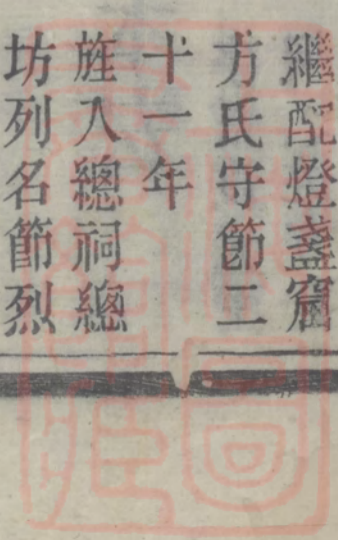 繼配燈盞窟
方氏守節二
十一年
旌入總祠總
坊列名節烈